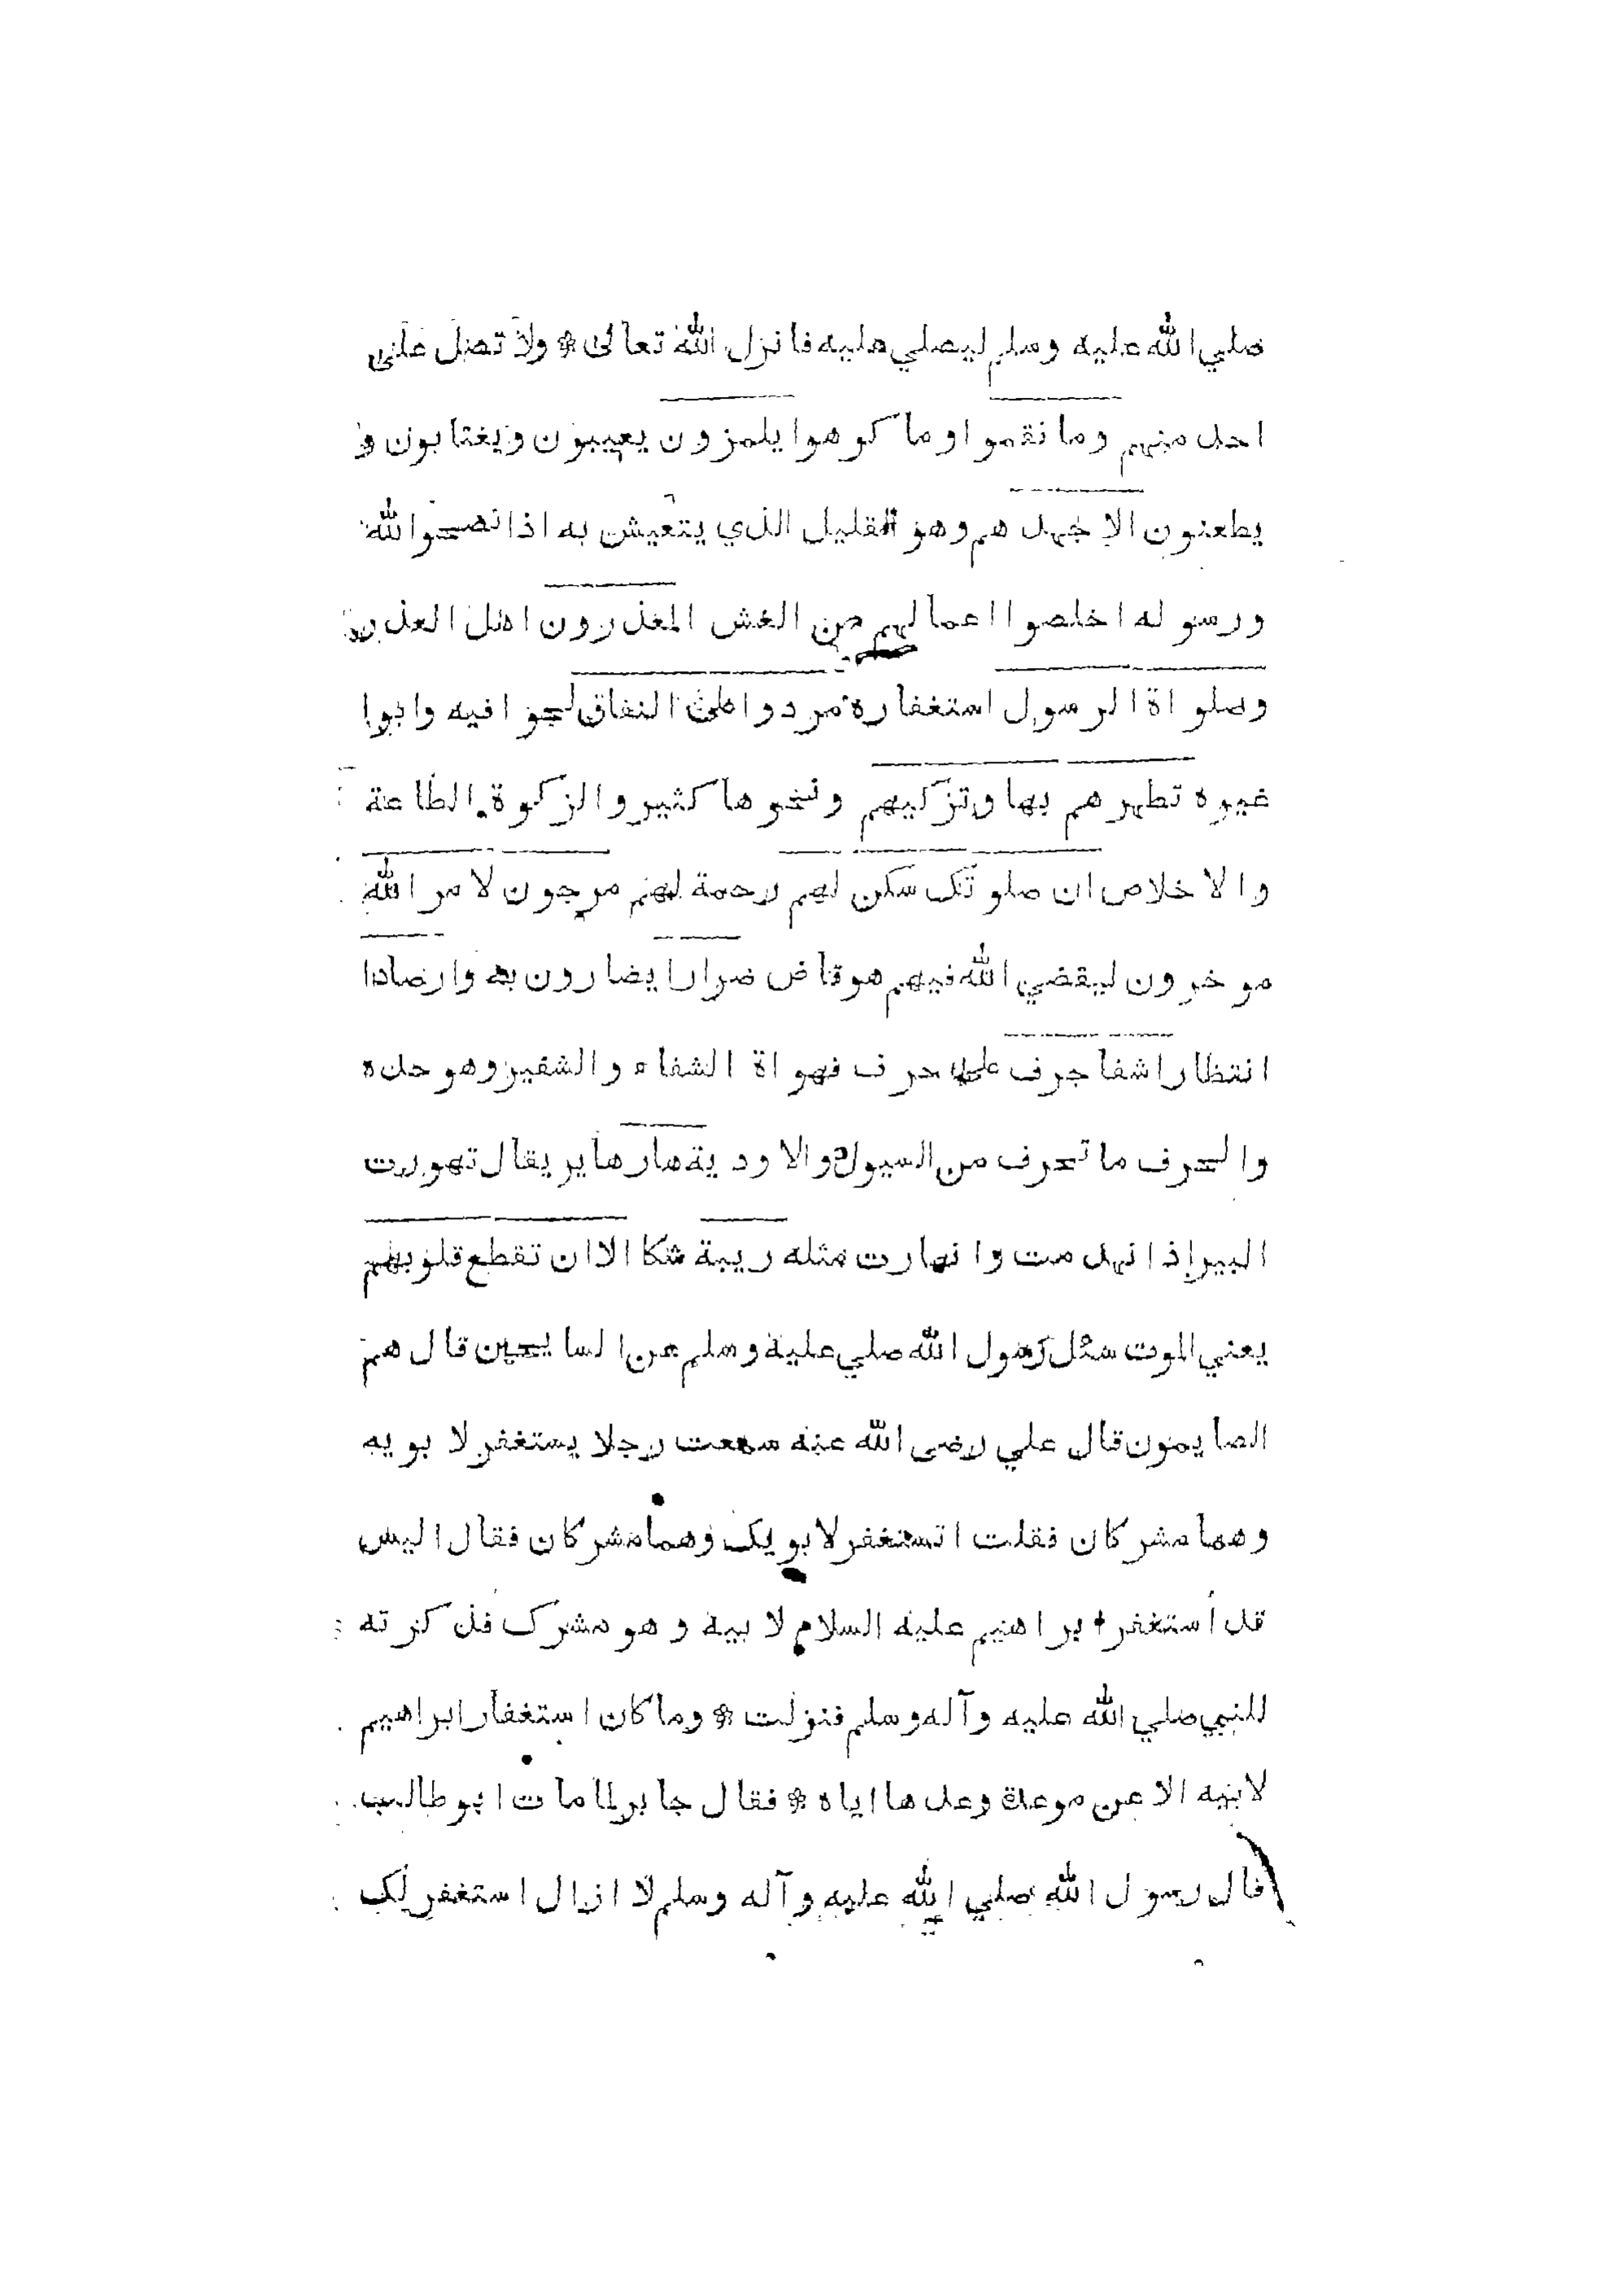 صلي الله عليه وسلم ليصلي عليه فانزل الله تعالى * ولا تصل على
احد منهم وما نقموا وما كرهوا يلمزون يعيبون ويغتابون و
يطعنون الا جهدهم وهو القليل الذي يتعيش به اذا نصحوا لله
ورسوله اخلصوا اعمالهم من الغش المعذرون اهل العذر
وصلواة الرسول استغفاره مردوا على النفاق لجوا فيه وابوا
غيره تطهرهم بها وتزكيهم ونحوها كثير والزكوة الطاعة
والاخلاص ان صلوتك سكن لهم رحمة لهم مرجون لامر الله
موخرون ليقضي الله فيهم هو قاض ضرارا يضارون به وارصادا
انتظارا شفا جرف علي حرف فهواة الشفاء والشفير وهو حده
والحرف ما تحرف من السيول والاودية هار هاير يقال تهورت
البير إذا انهدمت وانهارت مثله ريبة شكا الا ان تقطع قلوبهم
يعني الموت سئل رسول الله صلي عليه وسلم عن السايحين قال هم
الصايمون قال علي رضى الله عنه سمعت رجلا يستغفر لابويه
وهما مشركان فقلت اتستغفر لابويك وهما مشركان فقال اليس
قد استغفر ابراهيم عليه السلام لابيه وهو مشرك فذكرته
للنبي صلي الله عليه وآله وسلم فنزلت * وما كان استغفار ابراهيم
لابيه الا عن موعدة وعدها اياه * فقال جابر لما مات ابو طالب
قال رسول الله صلي الله عليه وآله وسلم لا ازال استغفر لك